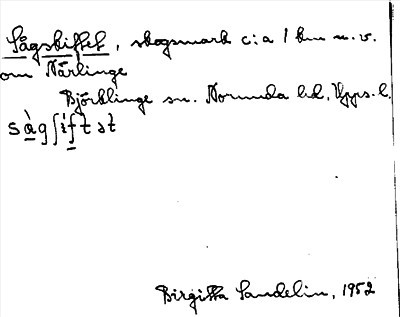 Sågskiftet, skogsmark c:a 1 km n.v.
om Närlinge
Björklinge sn. Norunda hd, Upps. l.
sàgʃiftət
Birgitta Sandelin, 1952